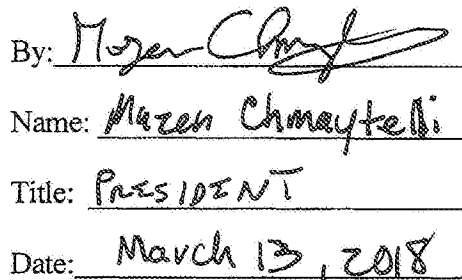 By: Mazen Chmaytelli
Name: Mazen Chmaytelli
Title: PRESIDENT
Date: March 13, 2018